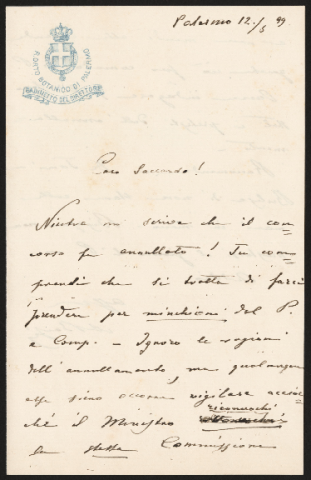 Palermo 12./5 99.
R. ORTO BOTANICO DI PALERMO
GABINETTO DEL DIRETTORE
Caro Saccardo!
Nicotra mi scrive che il con-
corso fu annullato! Tu com-
prendi che si tratta di farci
prendere per minchioni del P.
e Comp. – Ignoro le ragioni
dell'annullamento, ma qualunque
esse siano occorre vigilare acciò
riconuschi
ché il Ministro
la stessa Commissione